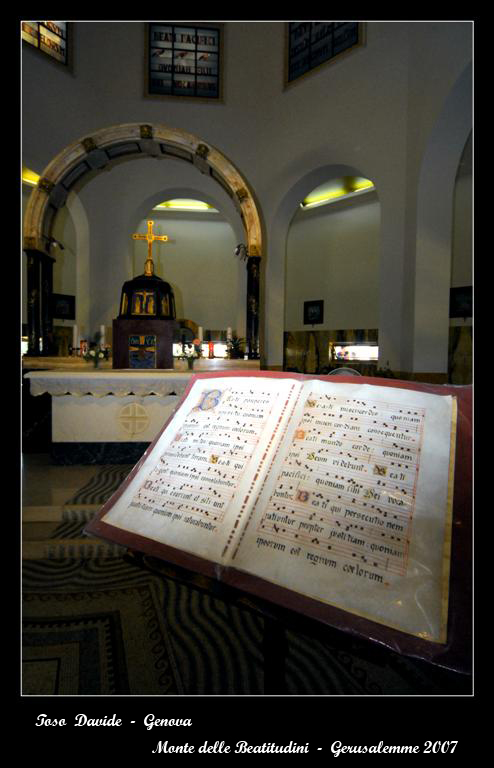 BEATI PACIFICI
QUONIAM
Beati pauperes
spiritu quoniam
ipsorum est regnum coelorum.
Beati qui
lugent quoniam ipsi consolabuntur.
Beati qui esuriunt et sitiunt
justitiam quoniam ipsi saturabuntur.
Beati misericordes quoniam
ipsi misericordiam consequentur.
Beati mundo corde quoniam
ipsi Deum videbunt. Beati
pacifici: quoniam filii Dei voca
buntur. Beati qui persecutionem
patiuntur propter justitiam: quoniam
ipsorum est regnum coelorum.
Toso Davide - Genova
Monte delle Beatitudini - Gerusalemme 2007